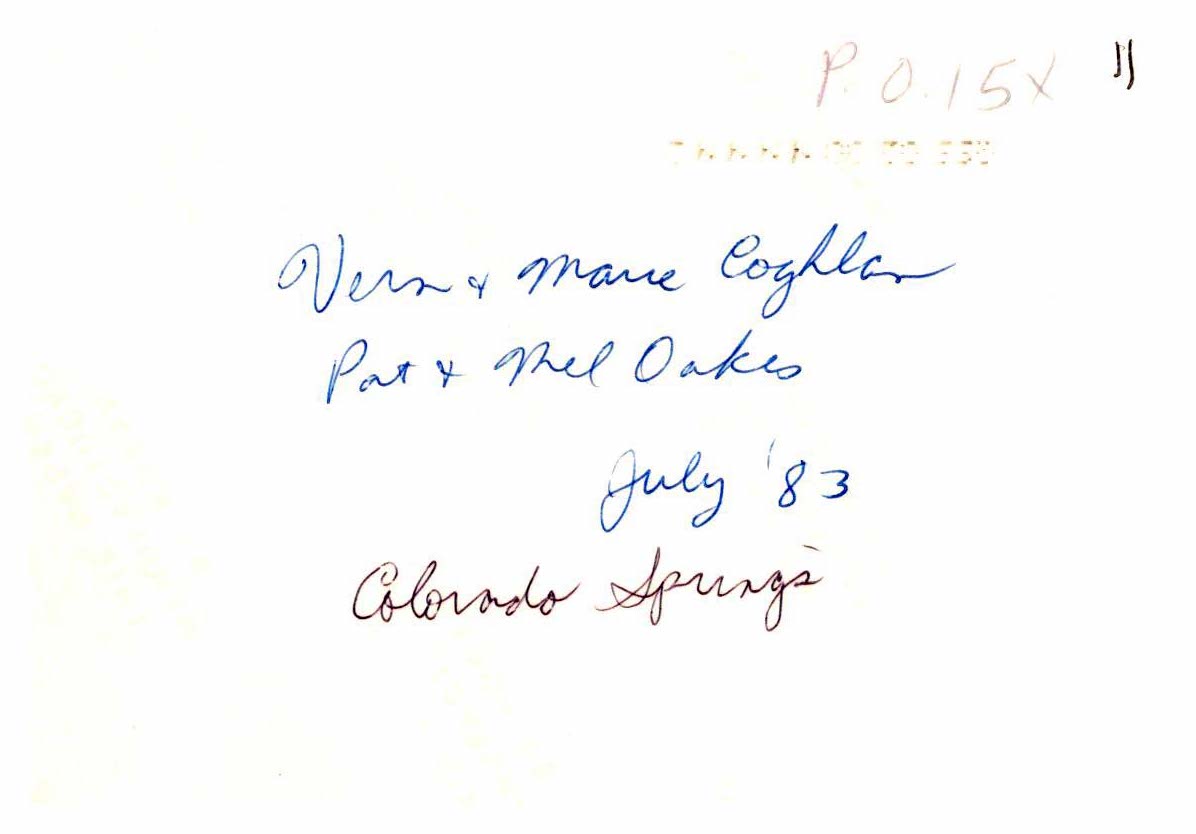 P.O. 15X
Vern & Marie Coghlan
Pat & Mel Oakes
July '83
Colorado Springs